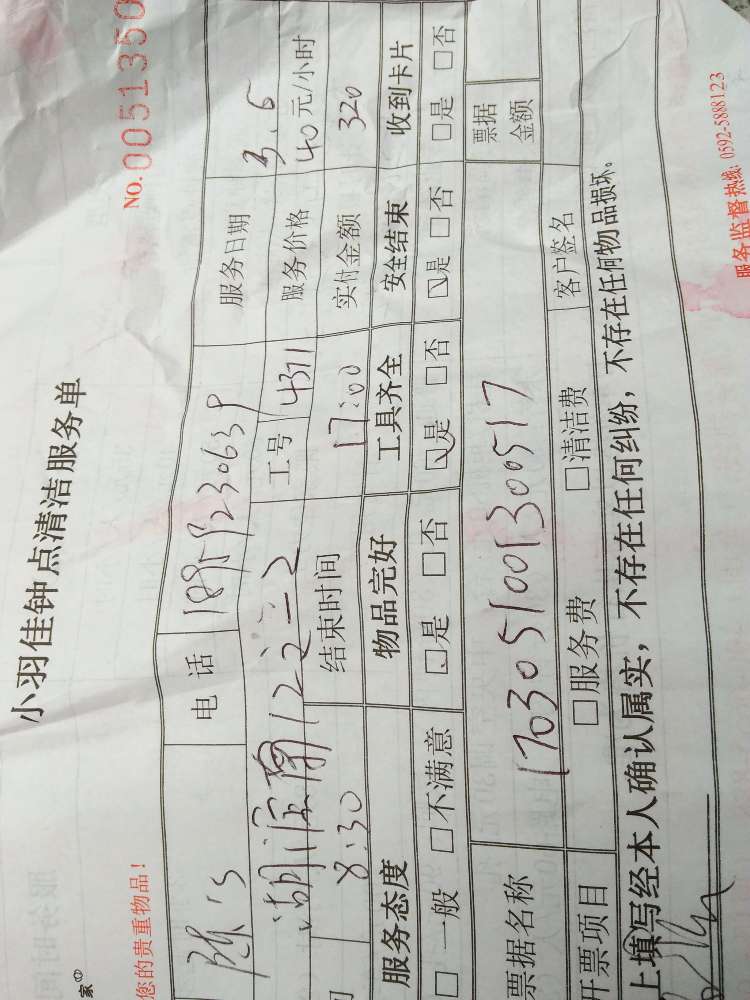 小羽佳钟点清洁服务单
家
您的贵重物品!
NO. 0051350
电话 服务日期 3.6
湖滨南122-2-2 工号 4311 服务价格 40元/小时
8:30 结束时间 17:00 实付金额 320
服务态度 物品完好 工具齐全 安全结束 收到卡片
□一般 □不满意 □是 □否 □是 □否 □是 □否 □是 □否
票据名称 1703051001300517 票据金额
开票项目 □服务费 □清洁费 客户签名
上填写经本人确认属实，不存在任何纠纷，不存在任何物品损坏。
服务监督热线: 0592-5888123